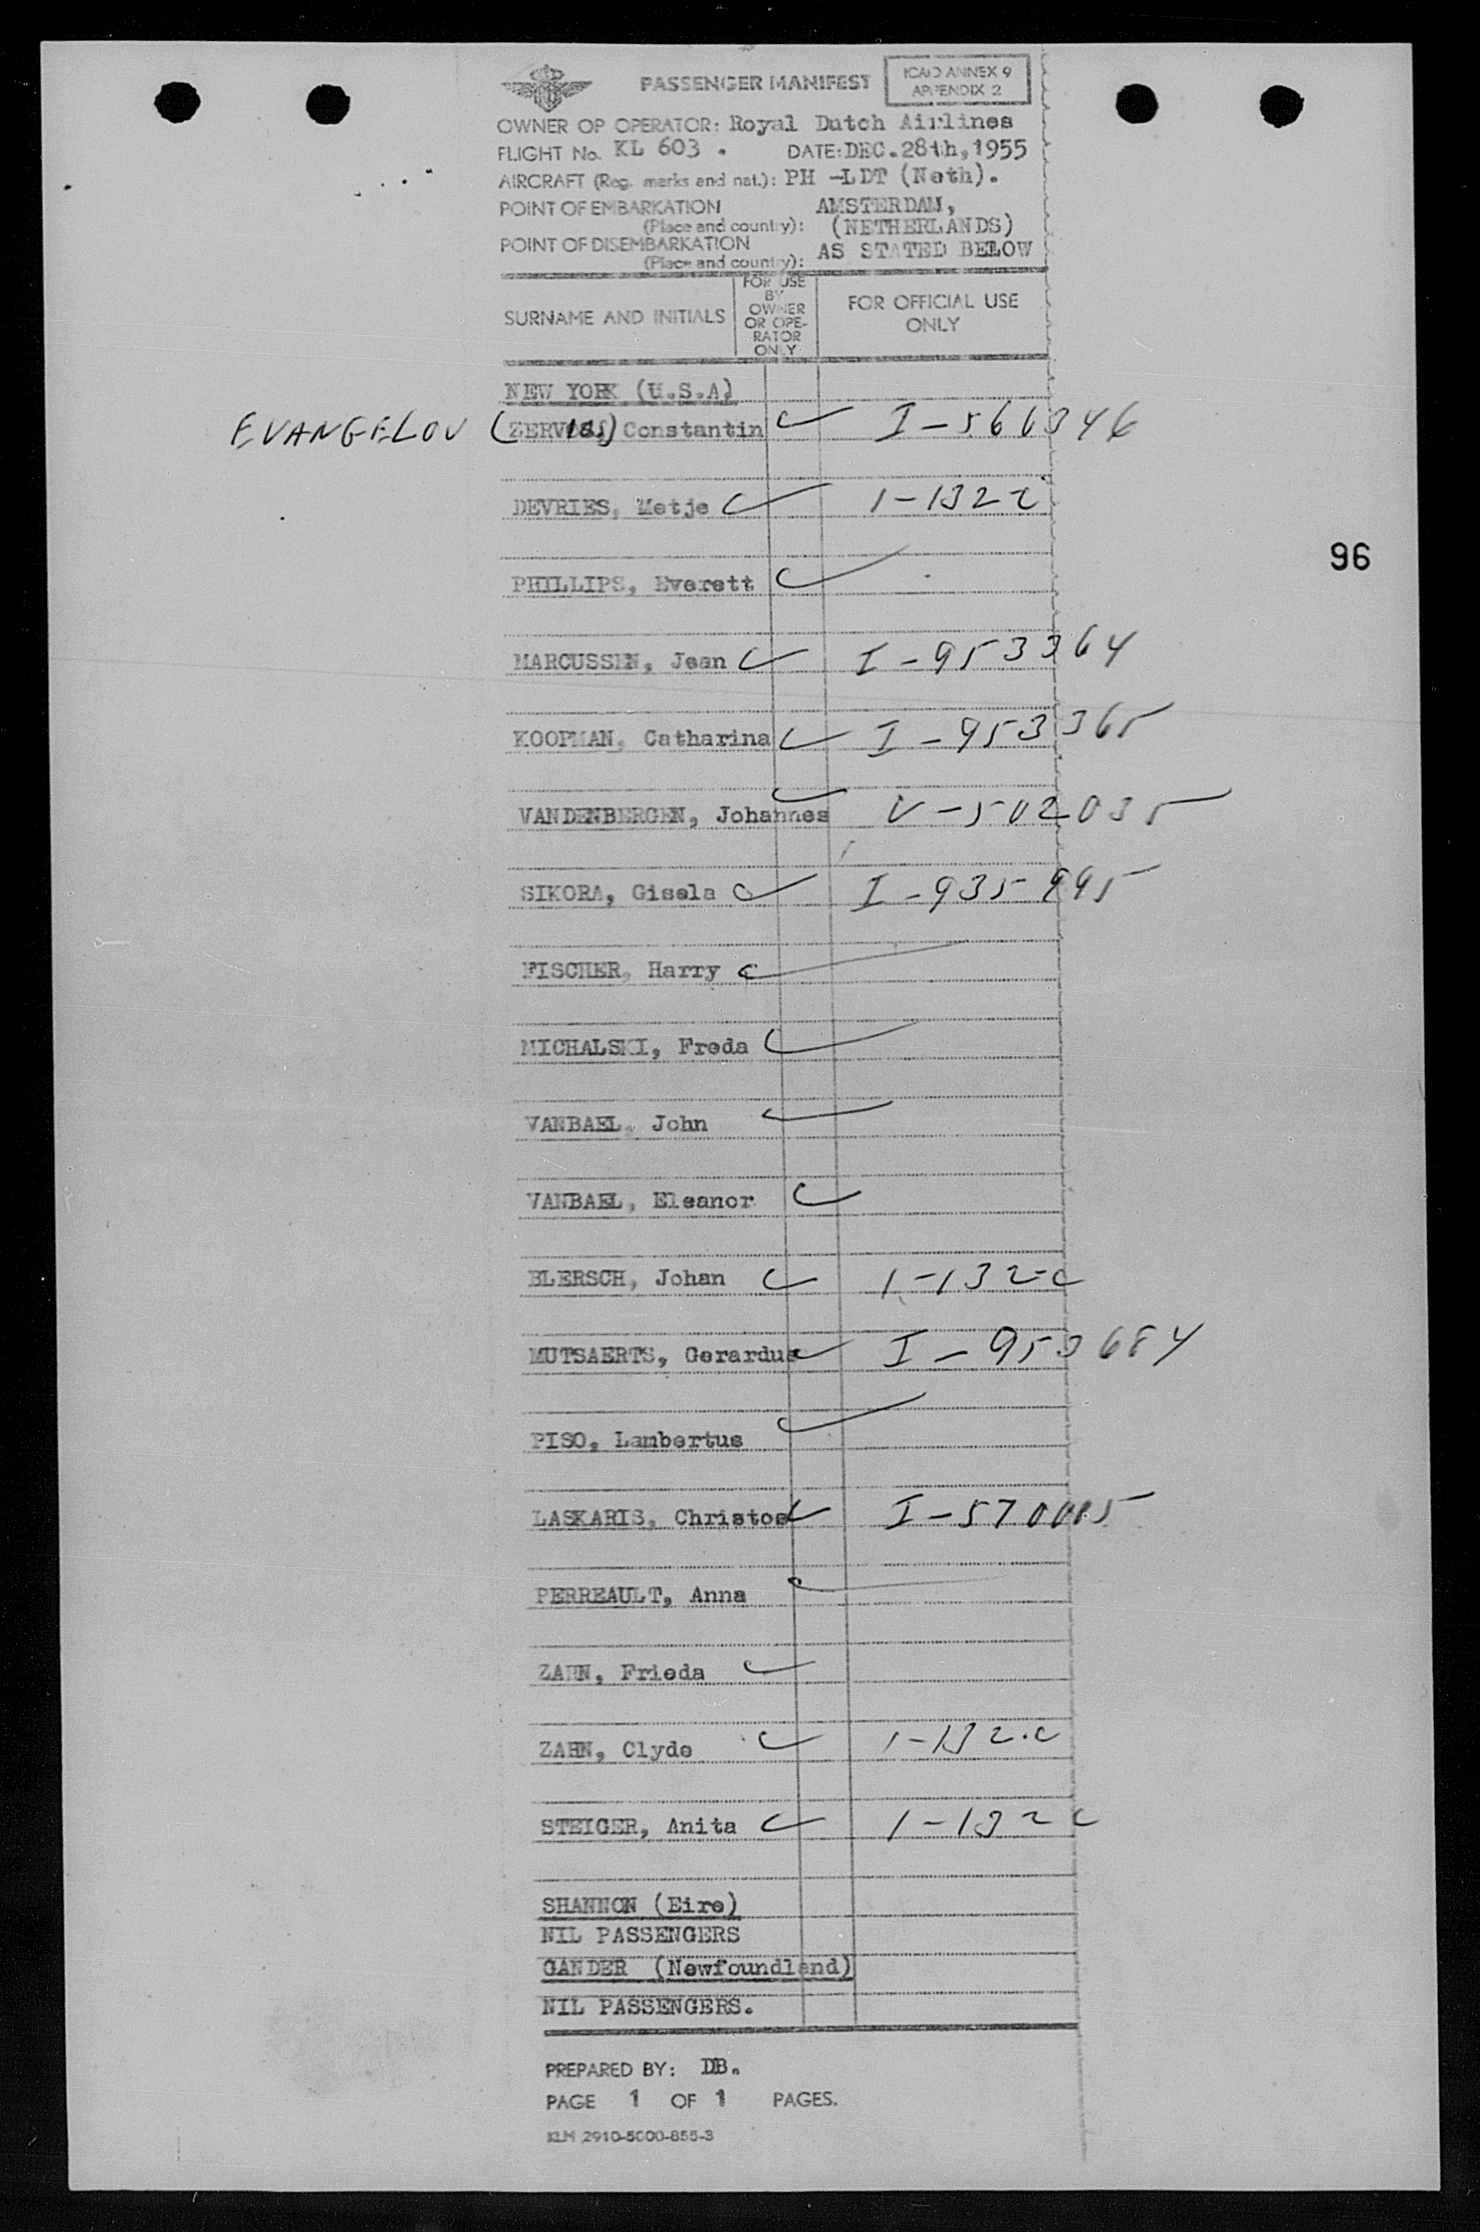 PASSENGER MANIFEST
ICAO ANNEX 9
APPENDIX 2
OWNER OP OPERATOR: Royal Dutch Airlines
FLIGHT No. KL 603 . DATE: DEC. 28th, 1955
AIRCRAFT (Reg. marks and nat.): PH -LDT (Neth).
POINT OF EMBARKATION AMSTERDAM,
(Place and country): (NETHERLANDS)
POINT OF DISEMBARKATION AS STATED BELOW
(Place and country):
SURNAME AND INITIALS
FOR USE
BY
OWNER
OR OPE-
RATOR
ONLY
FOR OFFICIAL USE
ONLY
NEW YORK (U.S.A)
EVANGELOU (ZERVOS) Constantin I-560346
DEVRIES, Metje 1-132 c
PHILLIPS, Everett
MARCUSSEN, Jean I-953364
KOOPMAN, Catharina I-953365
VANDENBERGEN, Johannes V-502035
SIKORA, Gisela I-935995
FISCHER, Harry
MICHALSKI, Freda
VANBAEL, John
VANBAEL, Eleanor
BLERSCH, Johan 1-132-c
MUTSAERTS, Gerardus I-953684
PISO, Lambertus
LASKARIS, Christos I-570005
PERREAULT, Anna
ZAHN, Frieda
ZAHN, Clyde 1-132.c
STEIGER, Anita 1-132 c
SHANNON (Eire)
NIL PASSENGERS
GANDER (Newfoundland)
NIL PASSENGERS.
PREPARED BY: DB.
PAGE 1 OF 1 PAGES.
KLM 2910-5000-855-3
96